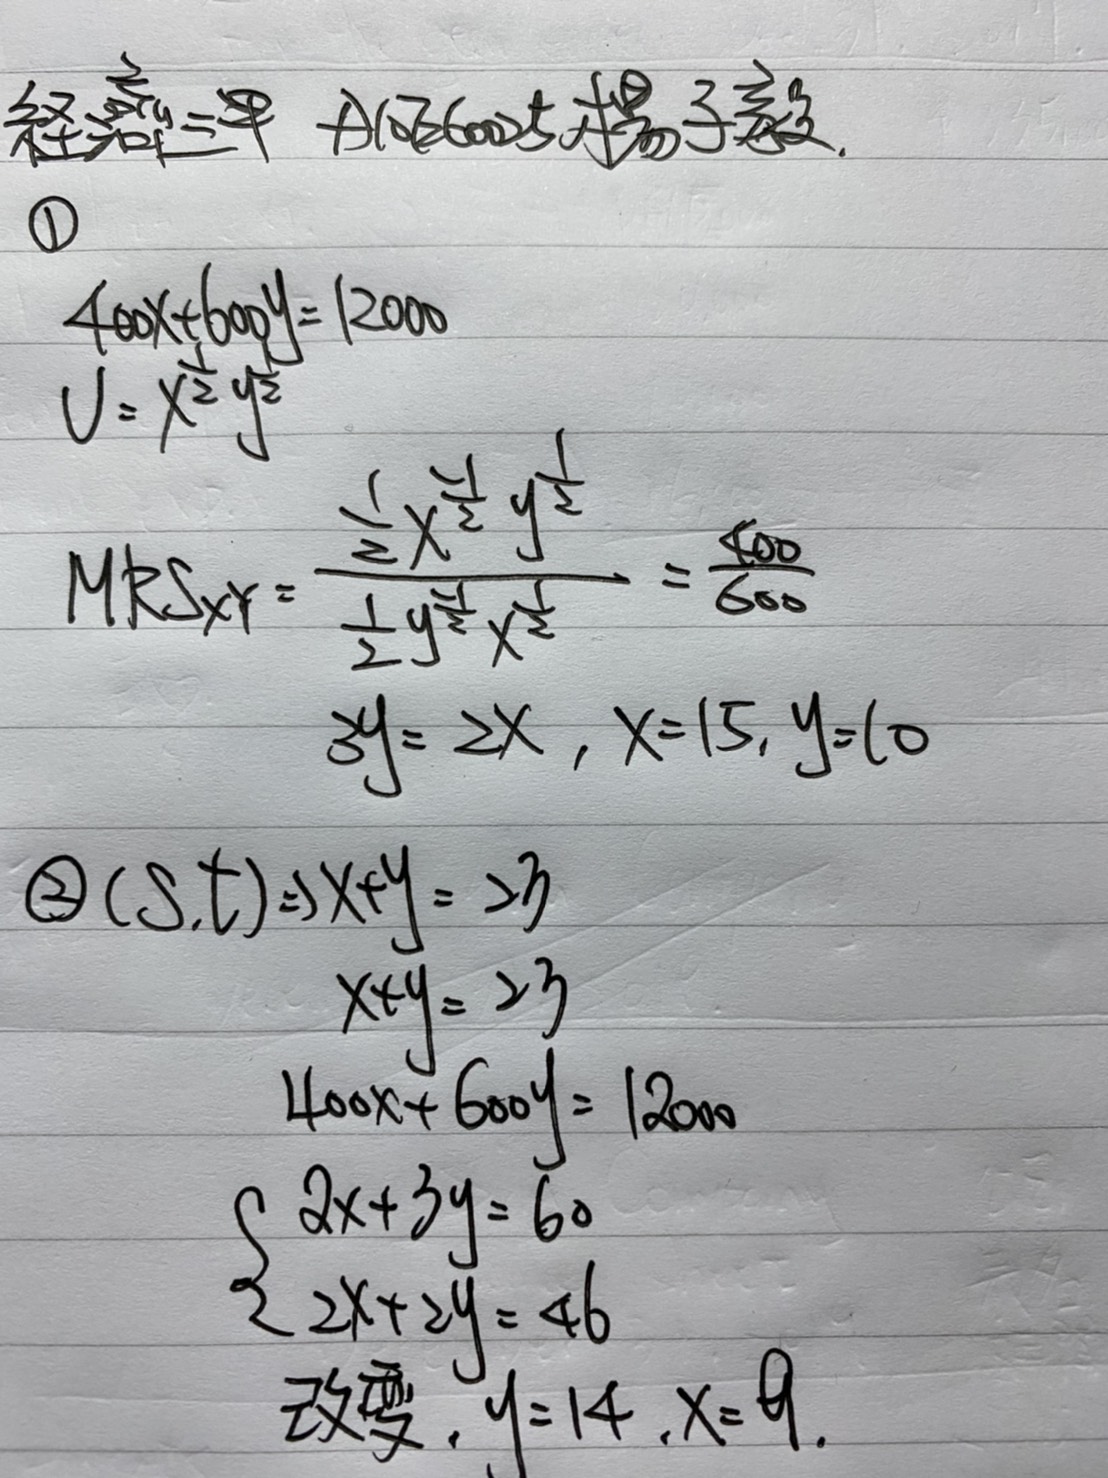 経濟二甲 A10E60025 楊子毅.
①
400x+600y=12000
U=x^{\frac{1}{2}}y^{\frac{1}{2}}
MRS_{XY}=\frac{\frac{1}{2}x^{-\frac{1}{2}}y^{\frac{1}{2}}}{\frac{1}{2}y^{-\frac{1}{2}}x^{\frac{1}{2}}}=\frac{400}{600}
3y=2x, x=15, y=10
②(S.t)⇒x+y=23
x+y=23
400x+600y=12000
{2x+3y=60
2x+2y=46
改變. y=14, x=9.